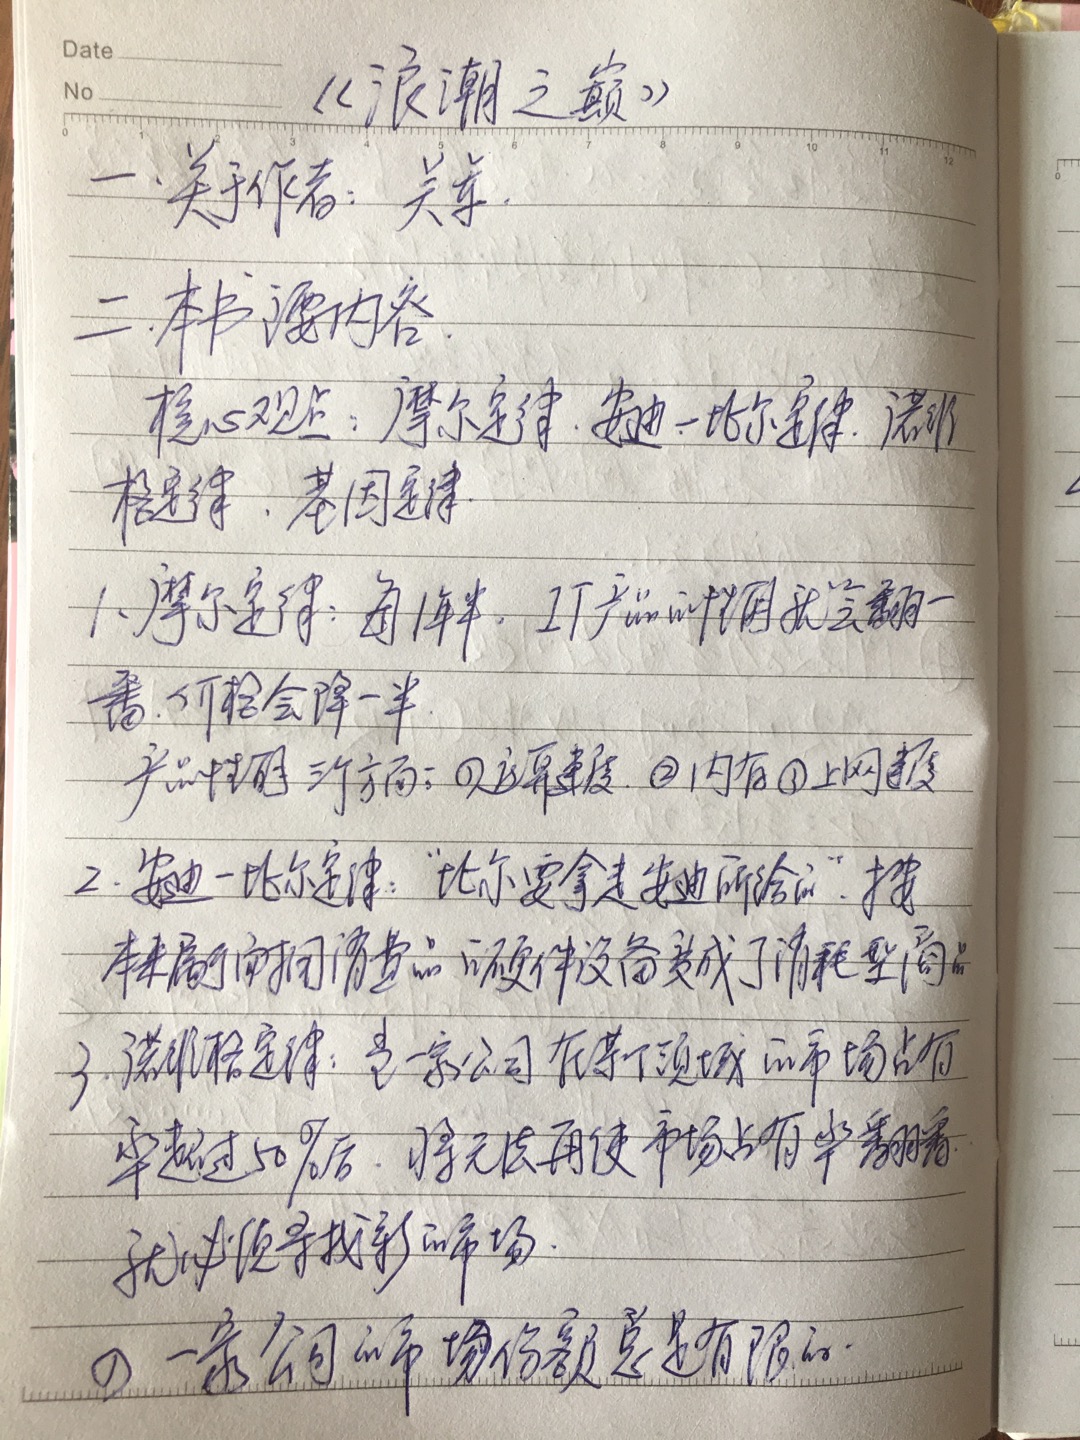 Date
No
《浪潮之巅》
0 1 2 3 4 5 6 7 8 9 10 11 12
一、关于作者：吴军.
二.本书主要内容.
核心观点：摩尔定律.安迪-比尔定律.诺维
格定律、基因定律.
1、摩尔定律：每1年半.IT产品的性能就会翻一
番.价格会降一半.
产品性能三个方面：①运算速度.②内存③上网速度
2.安迪-比尔定律：“比尔要拿走安迪所给的”.按
本来属于耐用消费品的硬件设备变成了消耗型商品
3.诺维格定律：当一家公司在某个领域的市场占有
率超过50%后.将无法再使市场占有率翻番.
就必须寻找新的市场.
①一家公司的市场份额总是有限的.